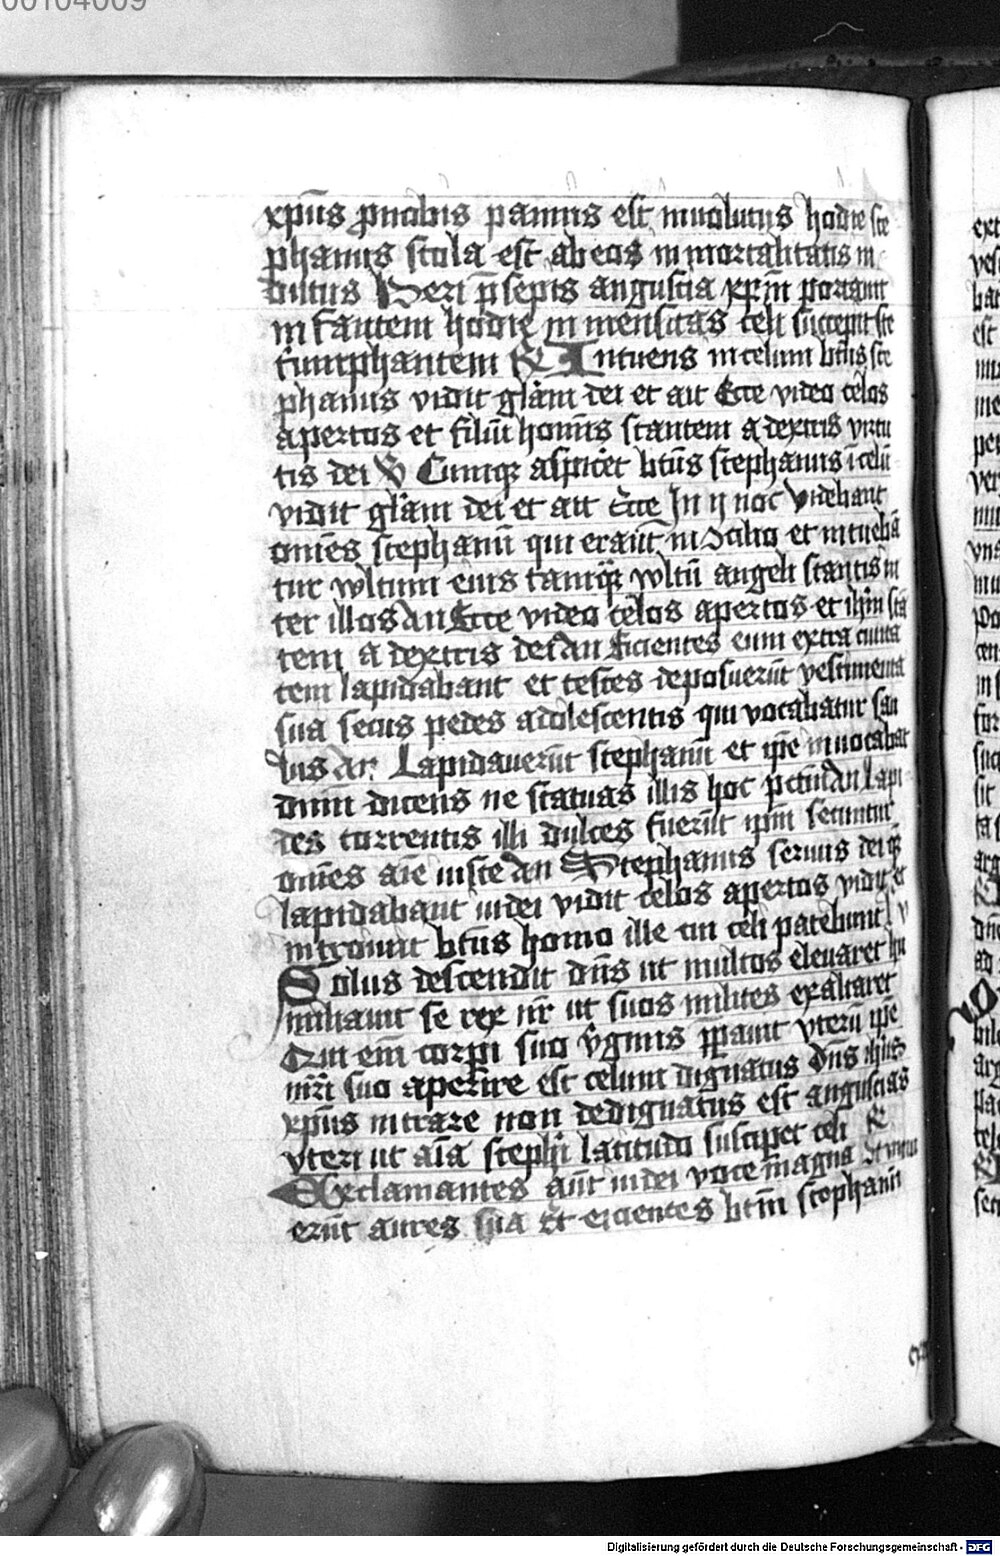 00104009
xp̄us ꝓ nobis pannis est inuolutus hodie ste
phanus stola est ab eos in mortalitatis in
dutus Heri p̄sepis angustia xp̄m portauit
infantem hodie in mensitas celi suscepit ste
triumphantem ℟ Intuens in celum bt̄us ste
phanus vidit gl̄am dei et ait Ecce video celos
apertos et filiū hominis stantem a dextris virtu
tis dei ℣ Cumqȝ aspicet bt̄us stephanus ī celū
vidit gl̄am dei et ait Ecce In ij noc Videbant
omēs stephanū qui erāt in 9cilio et intuebā
tur vvltum eius tamqȝ vvltū angeli stantis in
ter illos an Ecce video celos apertos et ihm̄ stā
tem a dextris dei an Eicientes eum extra ciuita
tem lapidabant et testes deposuerūt vestimenta
sua secus pedes adolescentis qui vocabatur sau
lus an Lapidauerūt stephanū et ip̄e inuocabat
dnm̄ dicens ne statuas illis hoc pctm̄ an Lapi
des torrentis illi dulces fuerūt ip̄m secuntur
omēs aīe iuste an Stephanus seruus dei qȝ
lapidabant iudei vidit celos apertos vidit et
introiuit bt̄us homo ille cui celi patebunt v
Solus descendit dn̄s ut multos eleuaret hu
miliauit se rex nr̄ ut suos milites exaltaret
Qui em̄ corpi suo v̄ginis p̄parauit vterū ip̄e
mr̄i suo aperire est celum dignatus dn̄s ihūs
xp̄us intrare non dedignatus est angustias
vteri ut aīa stephi latitudo suscipet celi ℟
Exclamantes aūt iudei voce magna 9tinu
erūt aures sua Et eicientes bt̄m stephanū
Digitalisierung gefördert durch die Deutsche Forschungsgemeinschaft - DFG